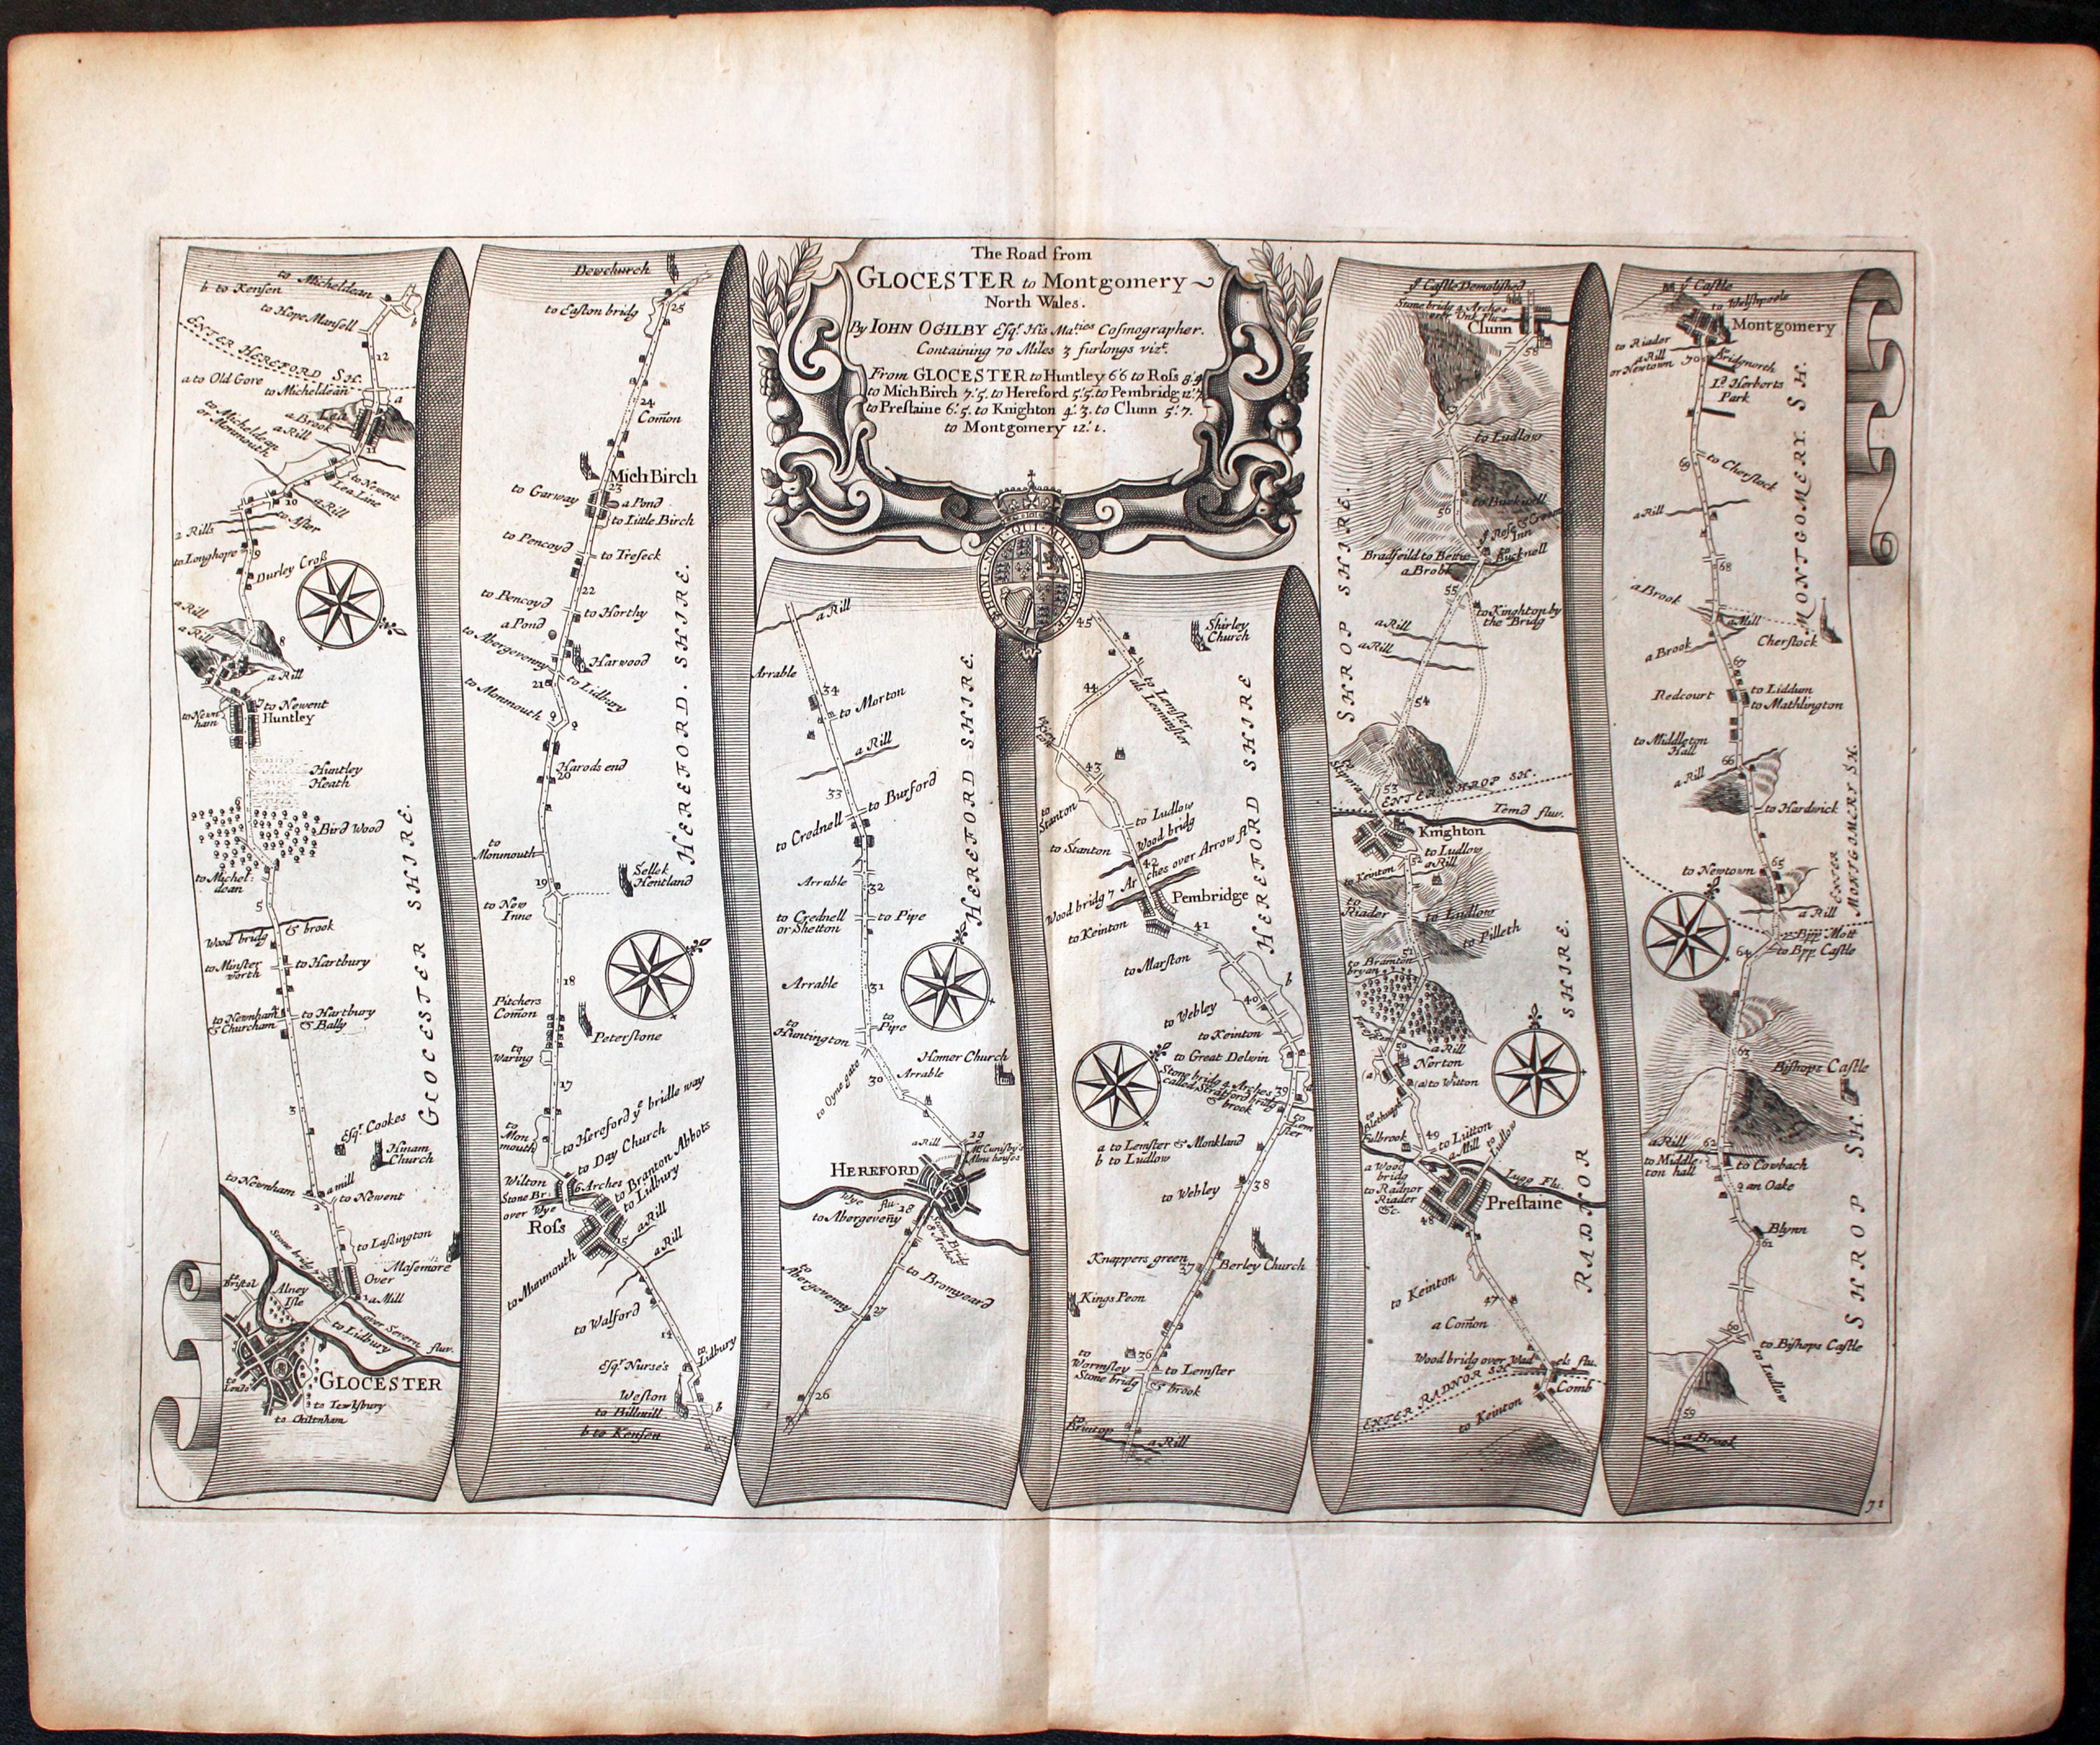 The Road from
GLOCESTER to Montgomery
North Wales.
By IOHN OGILBY Esqr. His Maties Cosmographer.
Containing 70 Miles 3 furlongs vizt.
From GLOCESTER to Huntley 6'6 to Ross 8'4
to Mich Birch 7'5. to Hereford 5'5. to Pembridg 12'7
to Prestaine 6'5. to Knighton 4'3. to Clunn 5'7.
to Montgomery 12'1.
HONI·SOIT·QUI·MAL·Y·PENSE
to Micheldean
b to Kensen
to Hope Mansell
b
12
ENTER HEREFORD SH.
a to Old Gore
to Micheldean
a
Lea
a Brook
a Rill
to Micheldean
or Monmouth
11
to Newent
Lea Line
10
a Rill
to Aster
2 Rills
to Longhope
9
Durley Cross
a Rill
a Rill
8
a Rill
to Newnham
to Newent
7
Huntley
Huntley
Heath
6
Bird Wood
to Micheldean
5
Wood bridg & brook
to Minsterworth
to Hartbury
4
to Newnham
& Churcham
to Hartbury
& Bally
GLOCESTER SHIRE.
3
Esqr. Cookes
Hinam
Church
to Newnham
a mill
to Newent
2
to Lassington
Masemore
Stone bridg 7
Over
1
a Mill
to Bristol
Alney
Isle
over Severn fluv.
to Lidbury
GLOCESTER
to Tewksbury
to Chiltenham
Dewchurch
to Easton bridg
25
24
Comon
Mich Birch
23
to Garway
a Pond
to Little Birch
to Pencoyd
to Treseck
22
to Pencoyd
to Horthy
a Pond
to Abergevenny
Harwood
21
to Lidbury
to Monmouth
Harods end
20
HEREFORD. SHIRE.
to
Monmouth
19
Sellek
Hentland
to New
Inne
18
Pitchers
Comon
Peterstone
to
Waring
17
to Hereford ye bridle way
to
Monmouth
to Day Church
Wilton
Stone Br.
over Wye
6 Arches
to Branton Abbots
to Lidbury
Ross
15
a Rill
a Rill
to Munmouth
to Walford
14
to
Lidbury
Esqr. Nurse's
Weston
b
to Billmill
b to Kensen
a Rill
Arrable
34
to Morton
a Rill
33
to Burford
to Crednell
Arrable
32
to Crednell
or Shetton
to Pipe
HEREFORD SHIRE.
Arrable
31
to
Huntington
to
Pipe
Homer Church
30
Arrable
to Oyne gate
a Rill
29
Mr Cunisby's
Alms houses
HEREFORD
Wye flu.
28
to Abergeveny
Stone Bridg
8 Arches
to
Abergevenny
to Bromyeard
27
26
45
Shirley
Church
44
to Lemster
als Leominster
43
to
Stanton
to Ludlow
to Stanton
Wood bridg
42
Wood bridg 7 Arches over Arrow fl.
Pembridge
to Keinton
41
to Marston
b
40
to Webley
to Keinton
to Great Delwin
a
Stone bridg 4 Arches
called Stratford bridg
& brook
39
to
Lemster
a to Lemster & Monkland
b to Ludlow
HEREFORD SHIRE
to Webley
38
Knappers green
37
Berley Church
Kings Peon
36
to
Wormsley
Stone bridg
to Lemster
& brook
to
Brintop
a Rill
ye Castle Demolished
Stone bridg 4 Arches
over Unk flu.
Clunn
58
to Ludlow
to Bucknell
56
ye Rose & Crown
Inn
Bradfeild to Bettus
to
Bucknell
a Brook
55
to Kinghton by
the Bridg
a Rill
a Rill
SHROP SHIRE.
54
53
ENTER SHROP SH.
Temd fluv.
Knighton
to Ludlow
52
a Rill
to Keinton
to
Riader
to Ludlow
to Pilleth
51
to Bramton
bryan
Forest
50
a Rill
Norton
(a)
(a) to Witton
to Blethvaugh
Fulbrook
49
to Lutton
a Mill
to Ludlow
a Wood
bridg
to Radnor
Riader
&c.
Lugg Flu.
Prestaine
48
RADNOR SHIRE.
to Keinton
47
a Comon
Wood bridg over Wadels flu.
ENTER RADNOR SH.
Comb
to Keinton
ye Castle
to Welshpoole
Montgomery
to Riader
a Rill
or Newtown
70
Bridgnorth
Ld. Herberts
Park
69
to Cherstock
a Rill
68
a Brook
a Mill
Cherstock
a Brook
67
Redcourt
to Liddum
to Mathlington
MONTGOMERY SH.
to Middleton
Hall
66
a Rill
to Hardwick
65
to Newtown
a Rill
ENTER
MONTGOMERY SH.
to Bpp Mott
64
to Bpp. Castle
63
Bishops Castle
62
a Rill
to Middleton hall
to Cowbach
an Oake
Blynn
61
SHROP SH.
60
to Bishops Castle
to Ludlow
59
a Brook
71